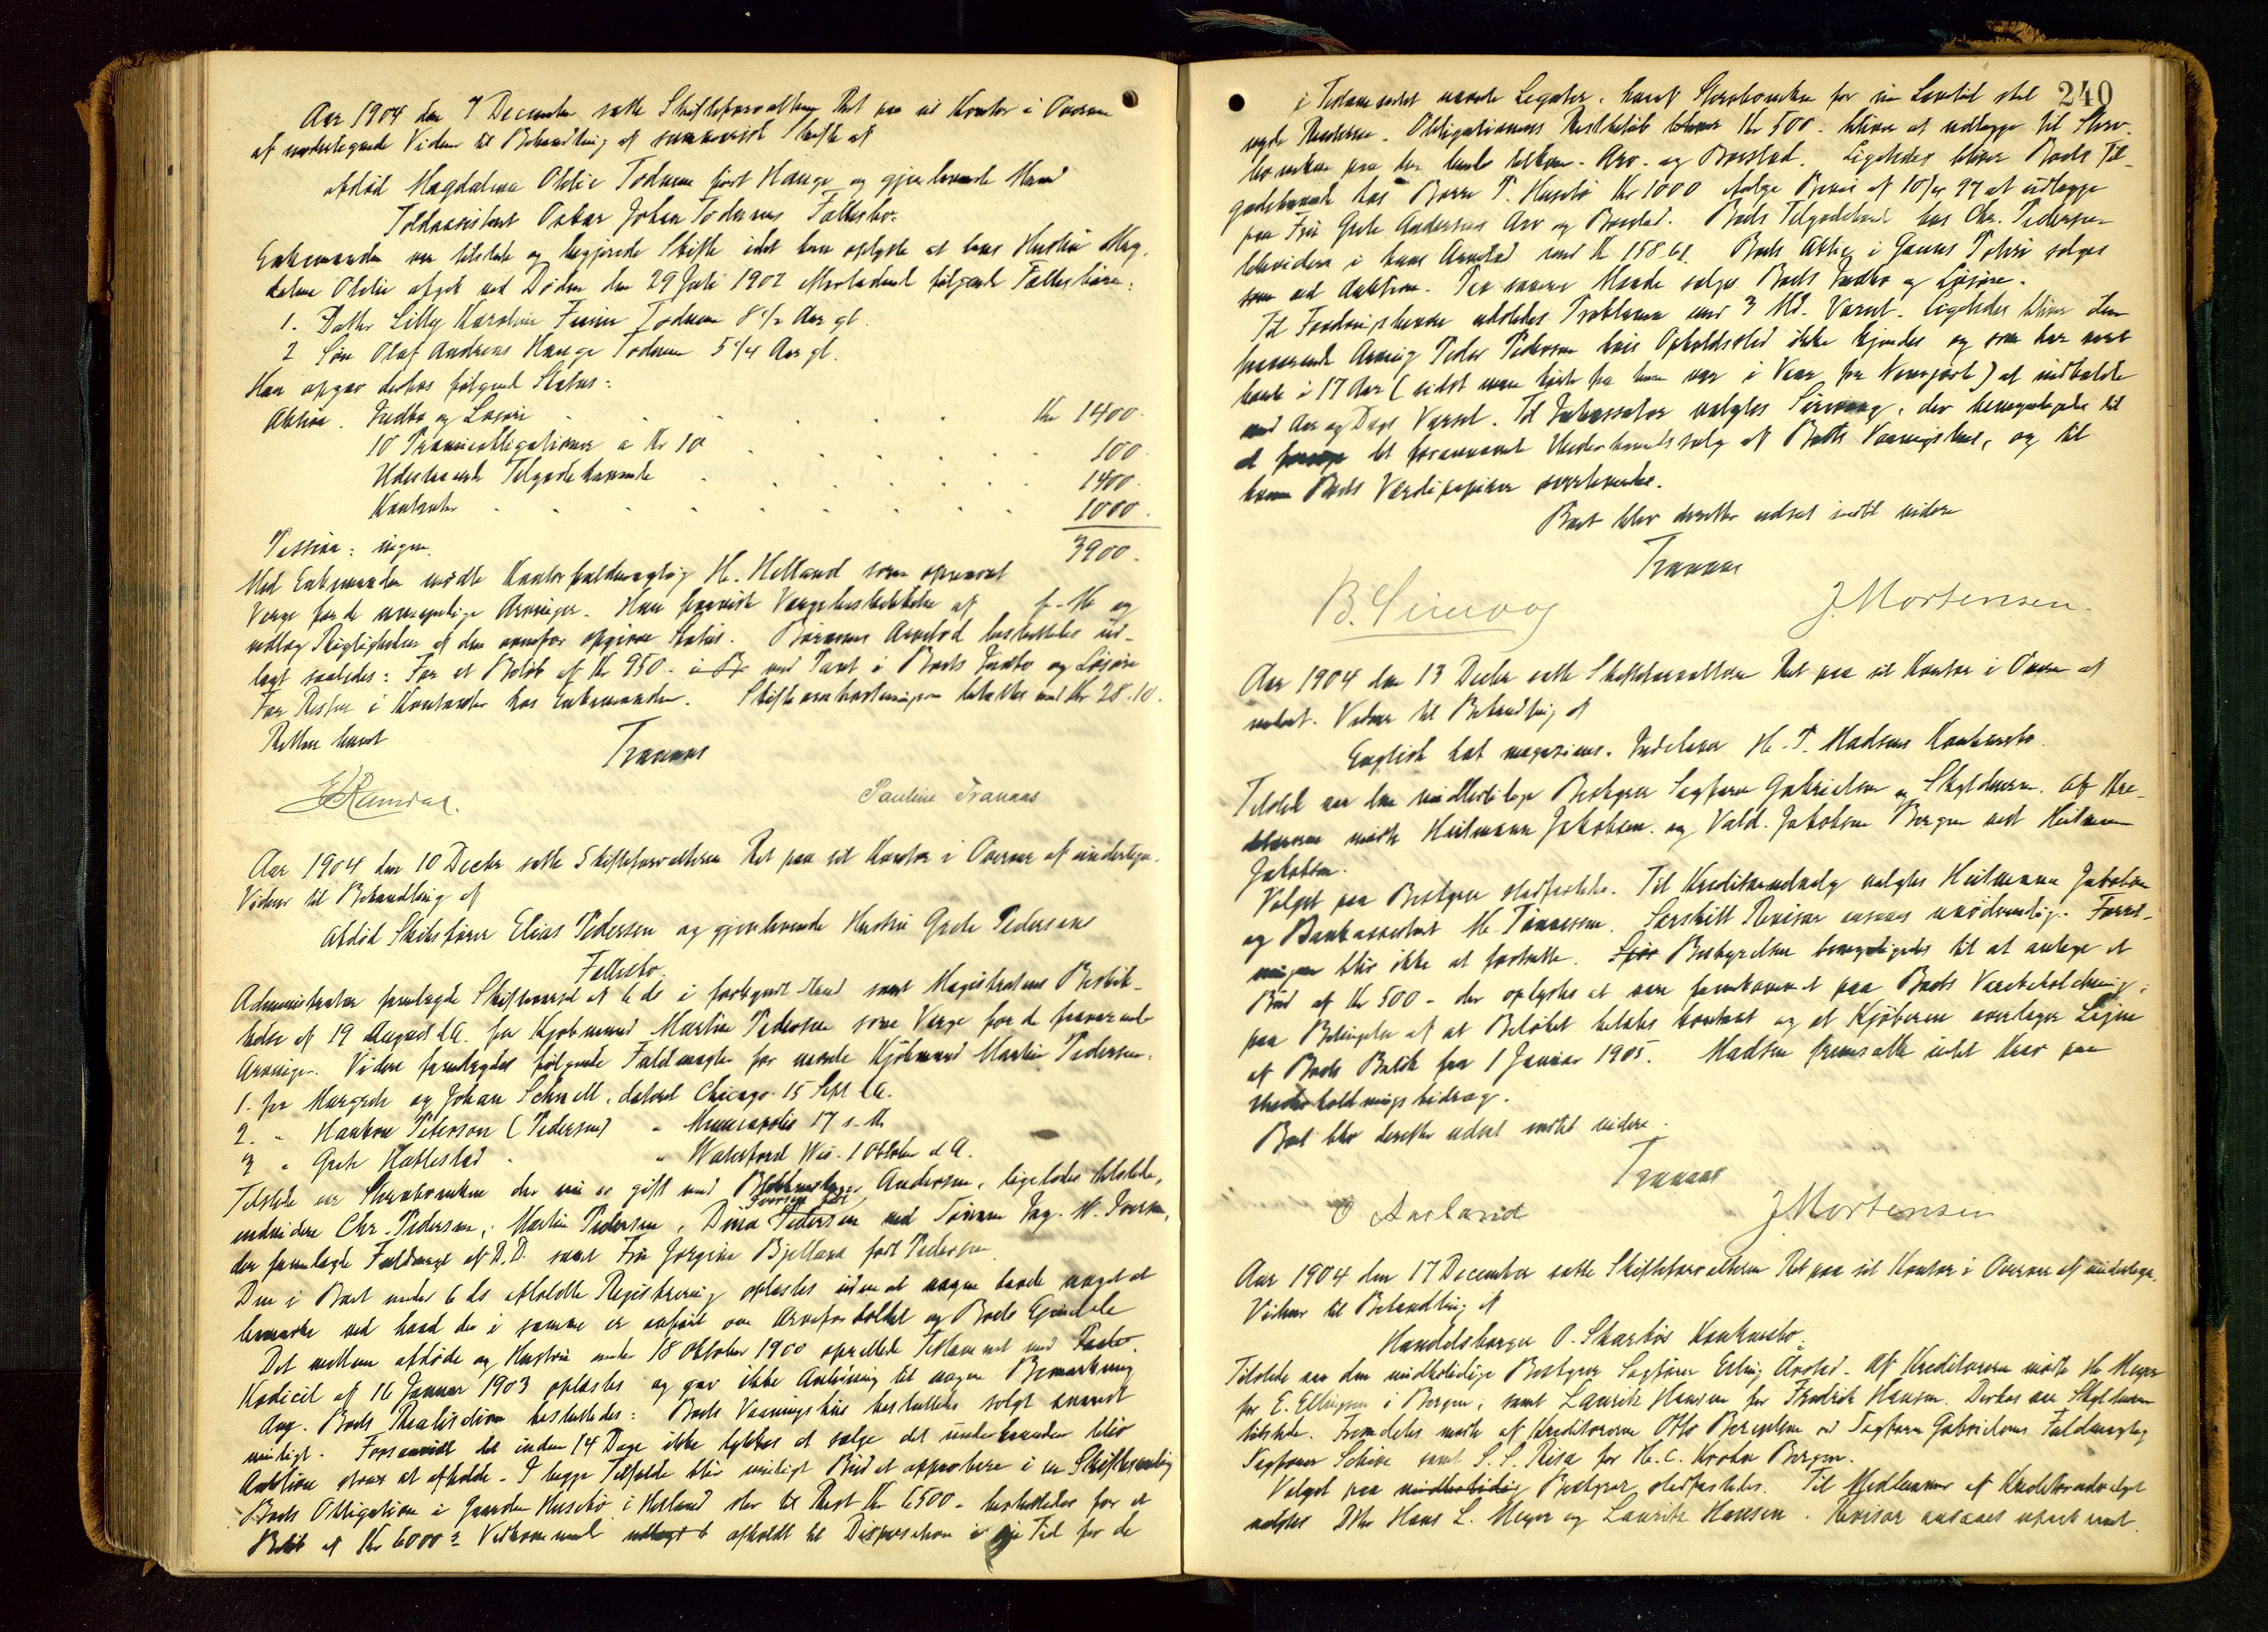 Aar 1904 den 7 December satte Skifteforvalteren Ret paa sit Kontor i Overvær
af undertegnede Vidner til Behandling af summarisk Skifte af
afdød Magdalena Otilie Todnem født Hauge og gjenlevende Mand
Toldassistent Oskar Johan Todnems Fællesbo.
Enkemanden var tilstede og begjærede Skifte idet han oplyste at hans Hustru Mag-
dalena Otilie afgik ved Døden den 29 Juli 1902 efterladende følgende Fællesbørn:
1. Datter Lilly Karoline Todnem 8 1/2 Aar gl.
2 Søn Olaf Andreas Hauge Todnem 5 1/4 Aar gl.
Han opgav derhos følgende Status:
Aktiva. Indbo og Løsøre Kr 1400.
10 Præmieobligationer a Kr 10 100.
Udestaaende Tilgodehavende 1400.
Kontanter 1000.
Passiva: ingen. 3900.
Med Enkemanden mødte Kontorfuldmægtig H. Helland som opnævnt
Verge for de umyndige Arvinger. Han Vergebeskikkelse af f. M. og
Rigtigheden af den ovenfor opgivne Status. Børnenes Arvelod besluttedes ud-
lagt saaledes: For et Beløb af Kr 950 - i B med Pant i Boets Indbo og Løsøre
For Resten i Kontanter hos Enkemanden. Skifteomkostningerne betaltes med Kr 28.10.
Retten hævet
Tranaas
Pauline Tranaas
Aar 1904 den 10 Decbr satte Skifteforvalteren Ret paa sit Kontor i Overvær af undertegn.
Vidner til Behandling af
afdød Skibsfører Elias Pedersen og gjenlevende Hustru Grete Pedersens
Fællesbo.
Administrator fremlagde Skiftevarsel af 6 ds i forkyndt Stand samt Magistratens Beskik-
kelse af 19 August d.A. for Kjøbmand Martin Pedersen som Verge for de fraværende
Arvinger. Videre fremlagdes følgende Fuldmagter for nævnte Kjøbmand Martin Pedersen:
1. fra Margrete og Johan Schnell, dateret Chicago 15 Sept d.A.
2. " Haakon Peterson (Pedersen) " Minneapolis 17 s. M.
3 " Grete Hattestad " Waterford Wis. 1 Oktober d A.
Tilstede var Skrøbonken der nu er gift med Andersen, ligeledes tilstede,
endvidere Chr. Pedersen, Martin Pedersen, Dina Pedersen Iversen født ved Ing. M. Iversen,
der fremlagde Fuldmagt af D.D. samt Fru Jørgine Bjelland født Pedersen.
Den i Boet under 6 ds afholdte Registrering oplæstes uden at nogen havde noget at
bemærke ved hvad der i samme er anført om Arveforholdet og Boets Eiendele
Det mellem afdøde og Hustru under 18 Oktober 1900 oprettede Testament med
Kodicil af 16 Januar 1903 oplæstes og gav ikke Anledning til nogen Bemærkning
Ang. Boets Realisation besluttedes: Boets Vaaningshus besluttedes solgt snarest
muligt. Forsaavidt det inden 14 Dage ikke lykkes at sælge det underhaanden blir
Auktion strax at afholde. I begge Tilfælde blir muligt Bud at approbere i en Skiftesamling
Boets Obligation i Gaarden Husebø i Hetland stor til Rest Kr 6500 - besluttedes for et
Beløb af Kr 6000 - afholdt til Disposition i sin Tid for de
240
i Testamentet nævnte Legater, hvoraf for sin Levetid skal
nyde Renterne. Obligationens Restbeløb Kr 500 - bliver at udlægge til
paa den hende tilkom. Arv- og Boeslod. Ligeledes bliver Boets Til-
godehavende hos Børre T. Husebø Kr 1000 ifølge Bevis af 10/4 97 at udlægge
paa Fru Grete Andersens Arv og Boeslod. Boets Tilgodehavende hos Chr. Pedersen
likvideres i hans Arvelod med Kr 158.61. Boets Aktie i Potteri sælges
som ved Auktion. Paa samme Maade sælges Boets Indbo og Løsøre.
Til Fordringshavere udstedes Proklama med 3 Md. Varsel. Ligeledes bliver den
fraværende Arving Peder Pedersen hvis Opholdssted ikke kjendes og som har været
borte i 17 Aar (sidst man hørte fra ham var i Vaar fra Newyork) at indkalde
med Aar og Dags Varsel. Til Inkassator valgtes Sirevaag, der bemyndigedes til
at forsøge det forannævnte Underhaandssalg af Boets Vaaningshus, og til
ham Boets Værdipapirer overleveredes.
Boet blev derefter udsat indtil videre
Tranaas
B. Sirevaag J. Mortensen.
Aar 1904 den 13 Decbr satte Skifteforvalteren Ret paa sit Kontor i Overvær af
undert. Vidner til Behandling af
English hat magazines, Indehaver H. P. Madsens Konkursbo.
Tilstede var den midlertidige Bestyrer Sagfører Gabrielsen og Skyldneren. Af Kre-
ditorerne mødte Heitmann Jakobsen og Vald. Jakobsen Bergen ved Heitmann
Jakobsen.
Valget paa Bestyrer stadfæstedes. Til Kreditorudvalg valgtes Heitmann Jakobsen
og Bankassistent M. Tønnessen. Særskilt Revisor ansaaes unødvendig. Forret-
ningen blir ikke at fortsætte. Bestyrelsen bemyndigedes til at antage et
Bud af Kr 500 - der oplystes at være fremkommet paa Boets Varebeholdning,
paa Betingelse af at Beløbet betales kontant og at Kjøberen overtager Leien
af Boets Butik fra 1 Januar 1905. Madsen fremsatte intet Krav paa
Underholdningsbidrag.
Boet blev derefter udsat indtil videre.
Tranaas
O Aarland J. Mortensen
Aar 1904 den 17 December satte Skifteforvalteren Ret paa sit Kontor i Overvær af undertegn.
Vidner til Behandling af
Handelsborger O. Skarbøs Konkursbo.
Tilstede var den midlertidige Bestyrer Sagfører Erling Aarstad. Af Kreditorerne mødte Hr Meyer
for E. Ellingsen i Bergen, samt Lauritz Hansen for Fredrik Hansen. Derhos var Skyldneren
tilstede. Fremdeles mødte af Kreditorerne Otto Berentsen ved Sagfører Gabrielsens Fuldmægtig
Sagfører Schive samt S. S. Risa for H. C. Krohn Bergen.
Valget paa midlertidig Bestyrer stadfæstedes. Til Medlemmer af Kreditorudvalget
valgtes Dhr Hans L. Meyer og Lauritz Hansen. Revisor ansaaes ufornødent.